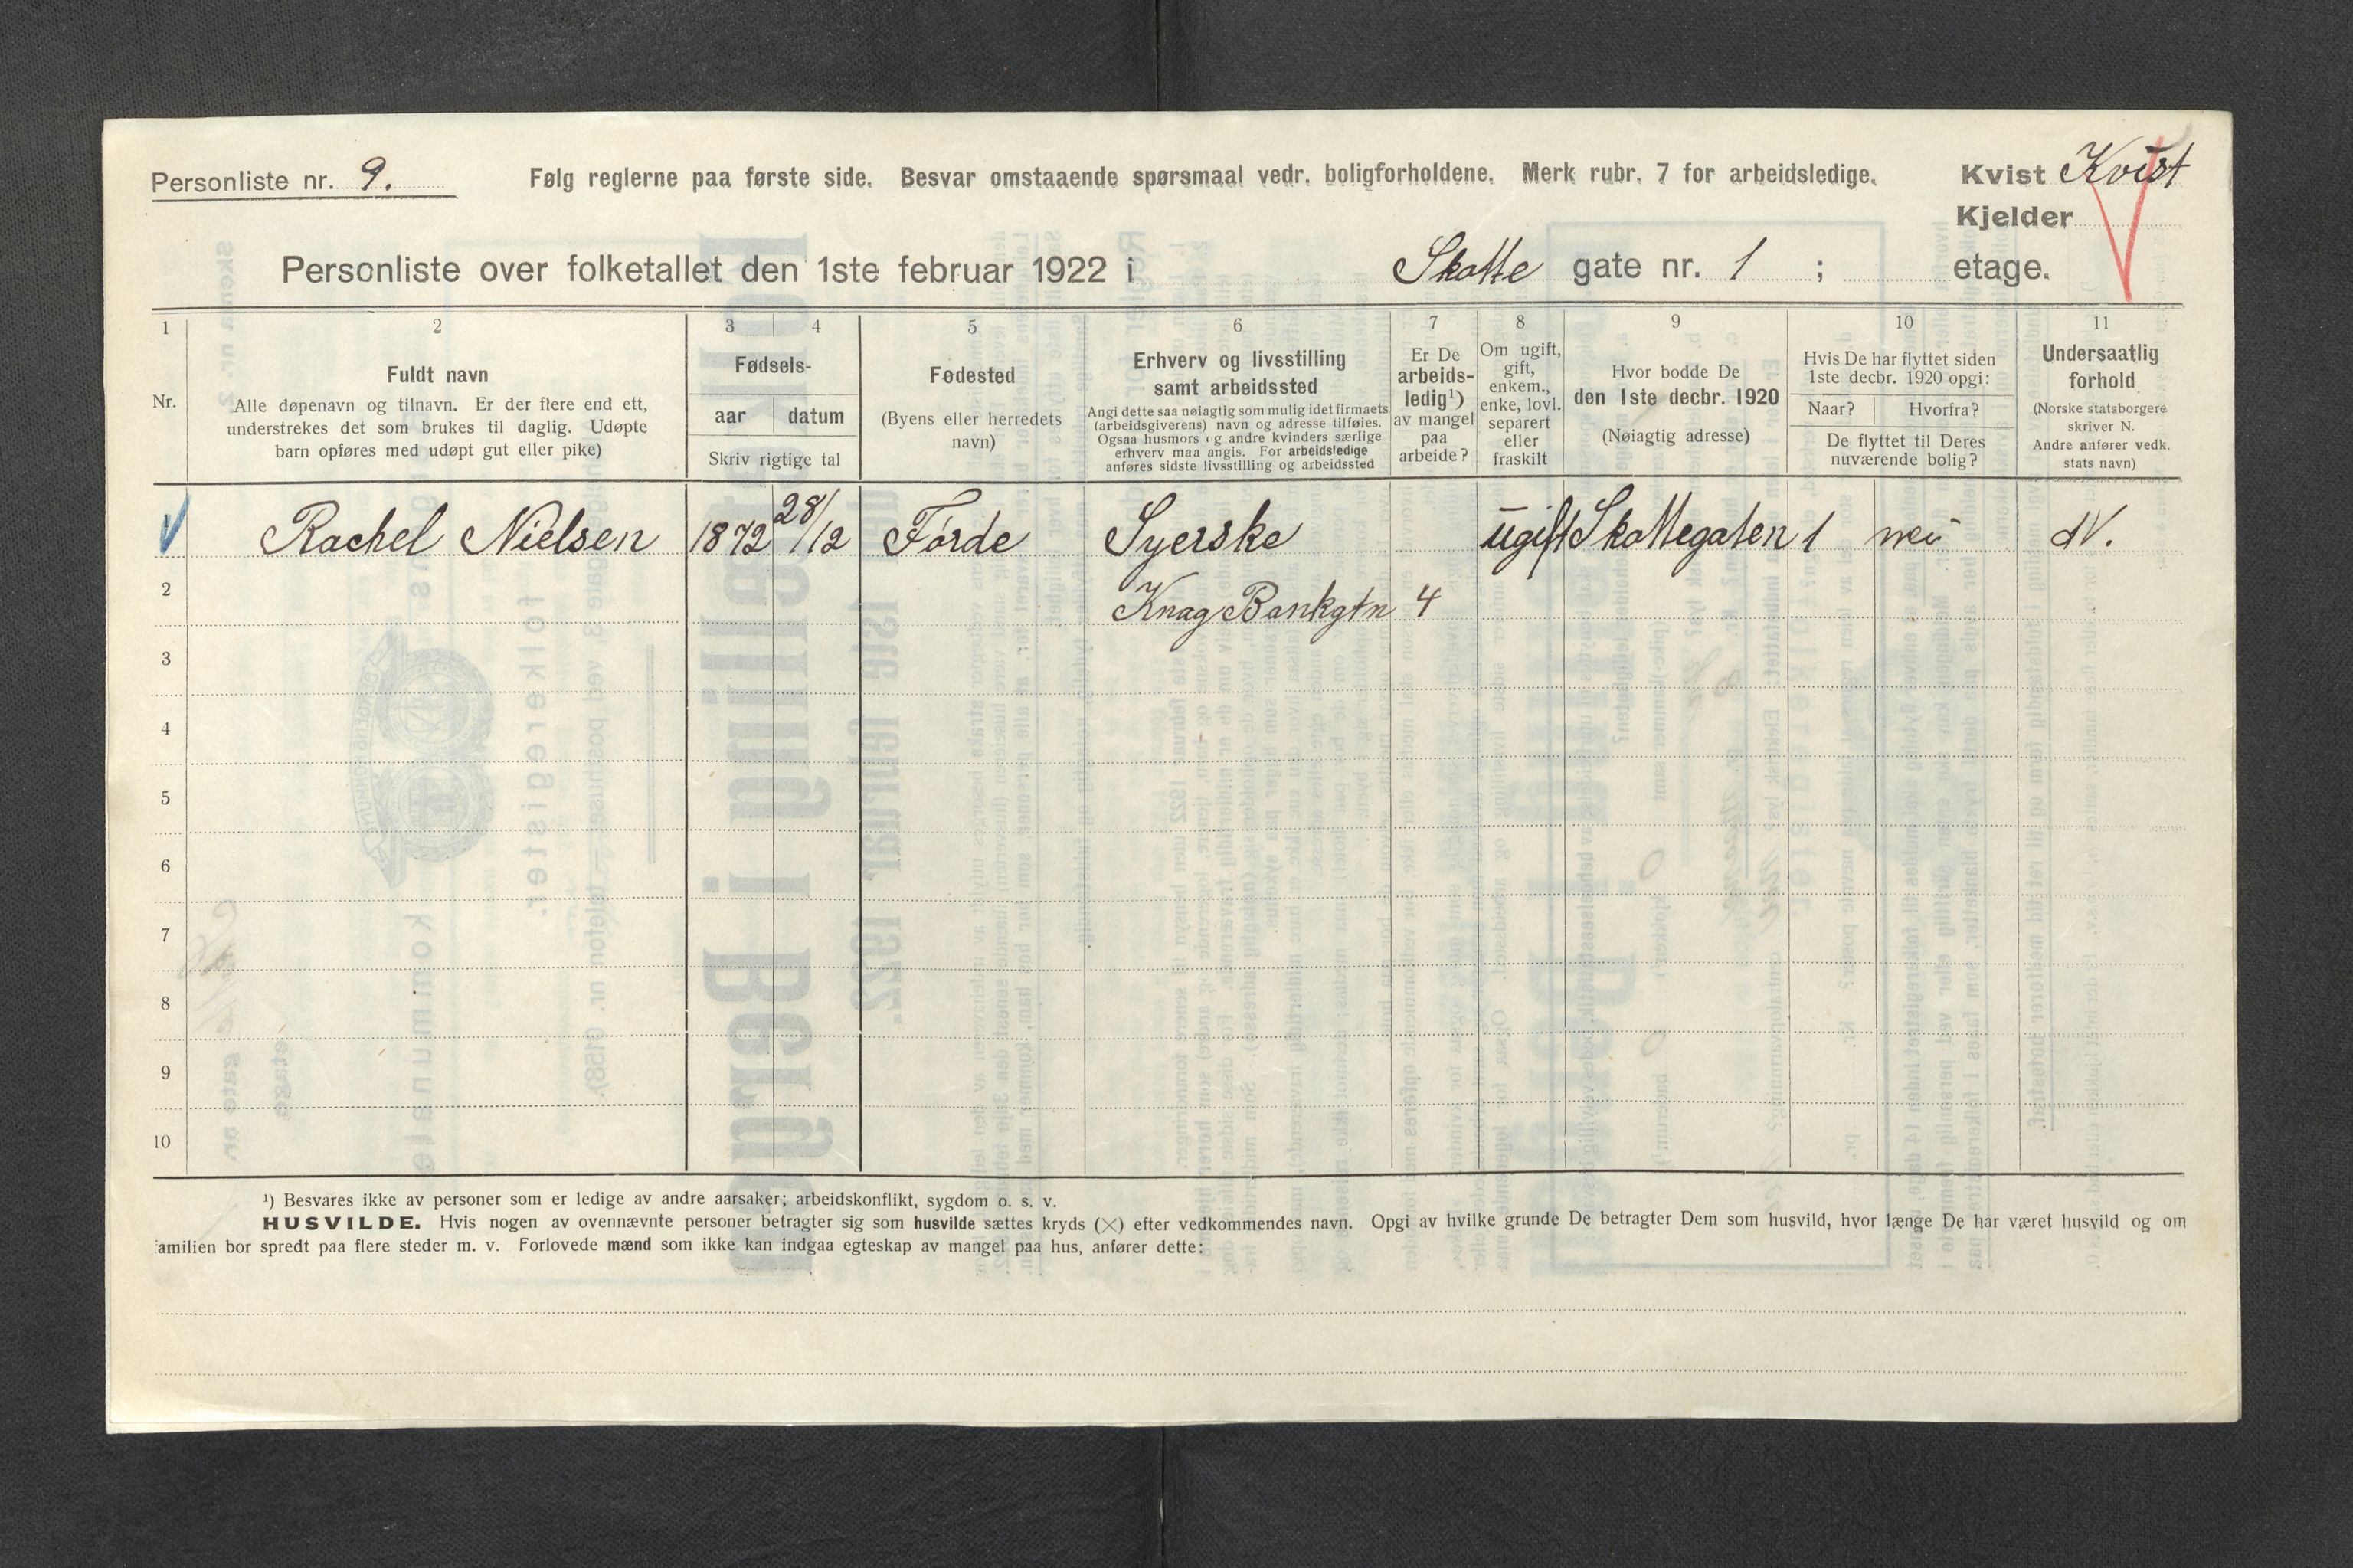 Personliste nr. 9. Følg reglerne paa første side. Besvar omstaaende spørsmaal vedr. boligforholdene. Merk rubr. 7 for arbeidsledige. Kvist Kvist
Kjelder
Personliste over folketallet den 1ste februar 1922 i Skotte gate nr. 1 ; etage.
1 2 3 4 5 6 7 8 9 10 11
Nr.
Fuldt navn
Alle døpenavn og tilnavn. Er der flere end ett,
understrekes det som brukes til daglig. Udøpte
barn opføres med udøpt gut eller pike)
Fødsels-
aar datum
Skriv rigtige tal
Fødested
(Byens eller herredets
navn)
Erhverv og livsstilling
samt arbeidssted
Angi dette saa nøiagtig som mulig idet firmaets
(arbeidsgiverens) navn og adresse tilføies.
Ogsaa husmors og andre kvinders særlige
erhverv maa angis. For arbeidsledige
anføres sidste livsstilling og arbeidssted
Er De
arbeids-
ledig¹)
av mangel
paa
arbeide?
Om ugift,
gift,
enkem.,
enke, lovl.
separert
eller
fraskilt
Hvor bodde De
den 1ste decbr. 1920
(Nøiagtig adresse)
Hvis De har flyttet siden
1ste decbr. 1920 opgi:
Naar? Hvorfra?
De flyttet til Deres
nuværende bolig?
Undersaatlig
forhold
(Norske statsborgere
skriver N.
Andre anfører vedk.
stats navn)
Rachel Nielsen 1872 28/12 Førde Syerske ugift Skottegaten 1 nei N.
2 Knag Bankgtn 4
3
4
5
6
7
8
9
10
¹) Besvares ikke av personer som er ledige av andre aarsaker; arbeidskonflikt, sygdom o. s. v.
HUSVILDE. Hvis nogen av ovennævnte personer betragter sig som husvilde sættes kryds (×) efter vedkommendes navn. Opgi av hvilke grunde De betragter Dem som husvild, hvor længe De har været husvild og om
amilien bor spredt paa flere steder m. v. Forlovede mænd som ikke kan indgaa egteskap av mangel paa hus, anfører dette: